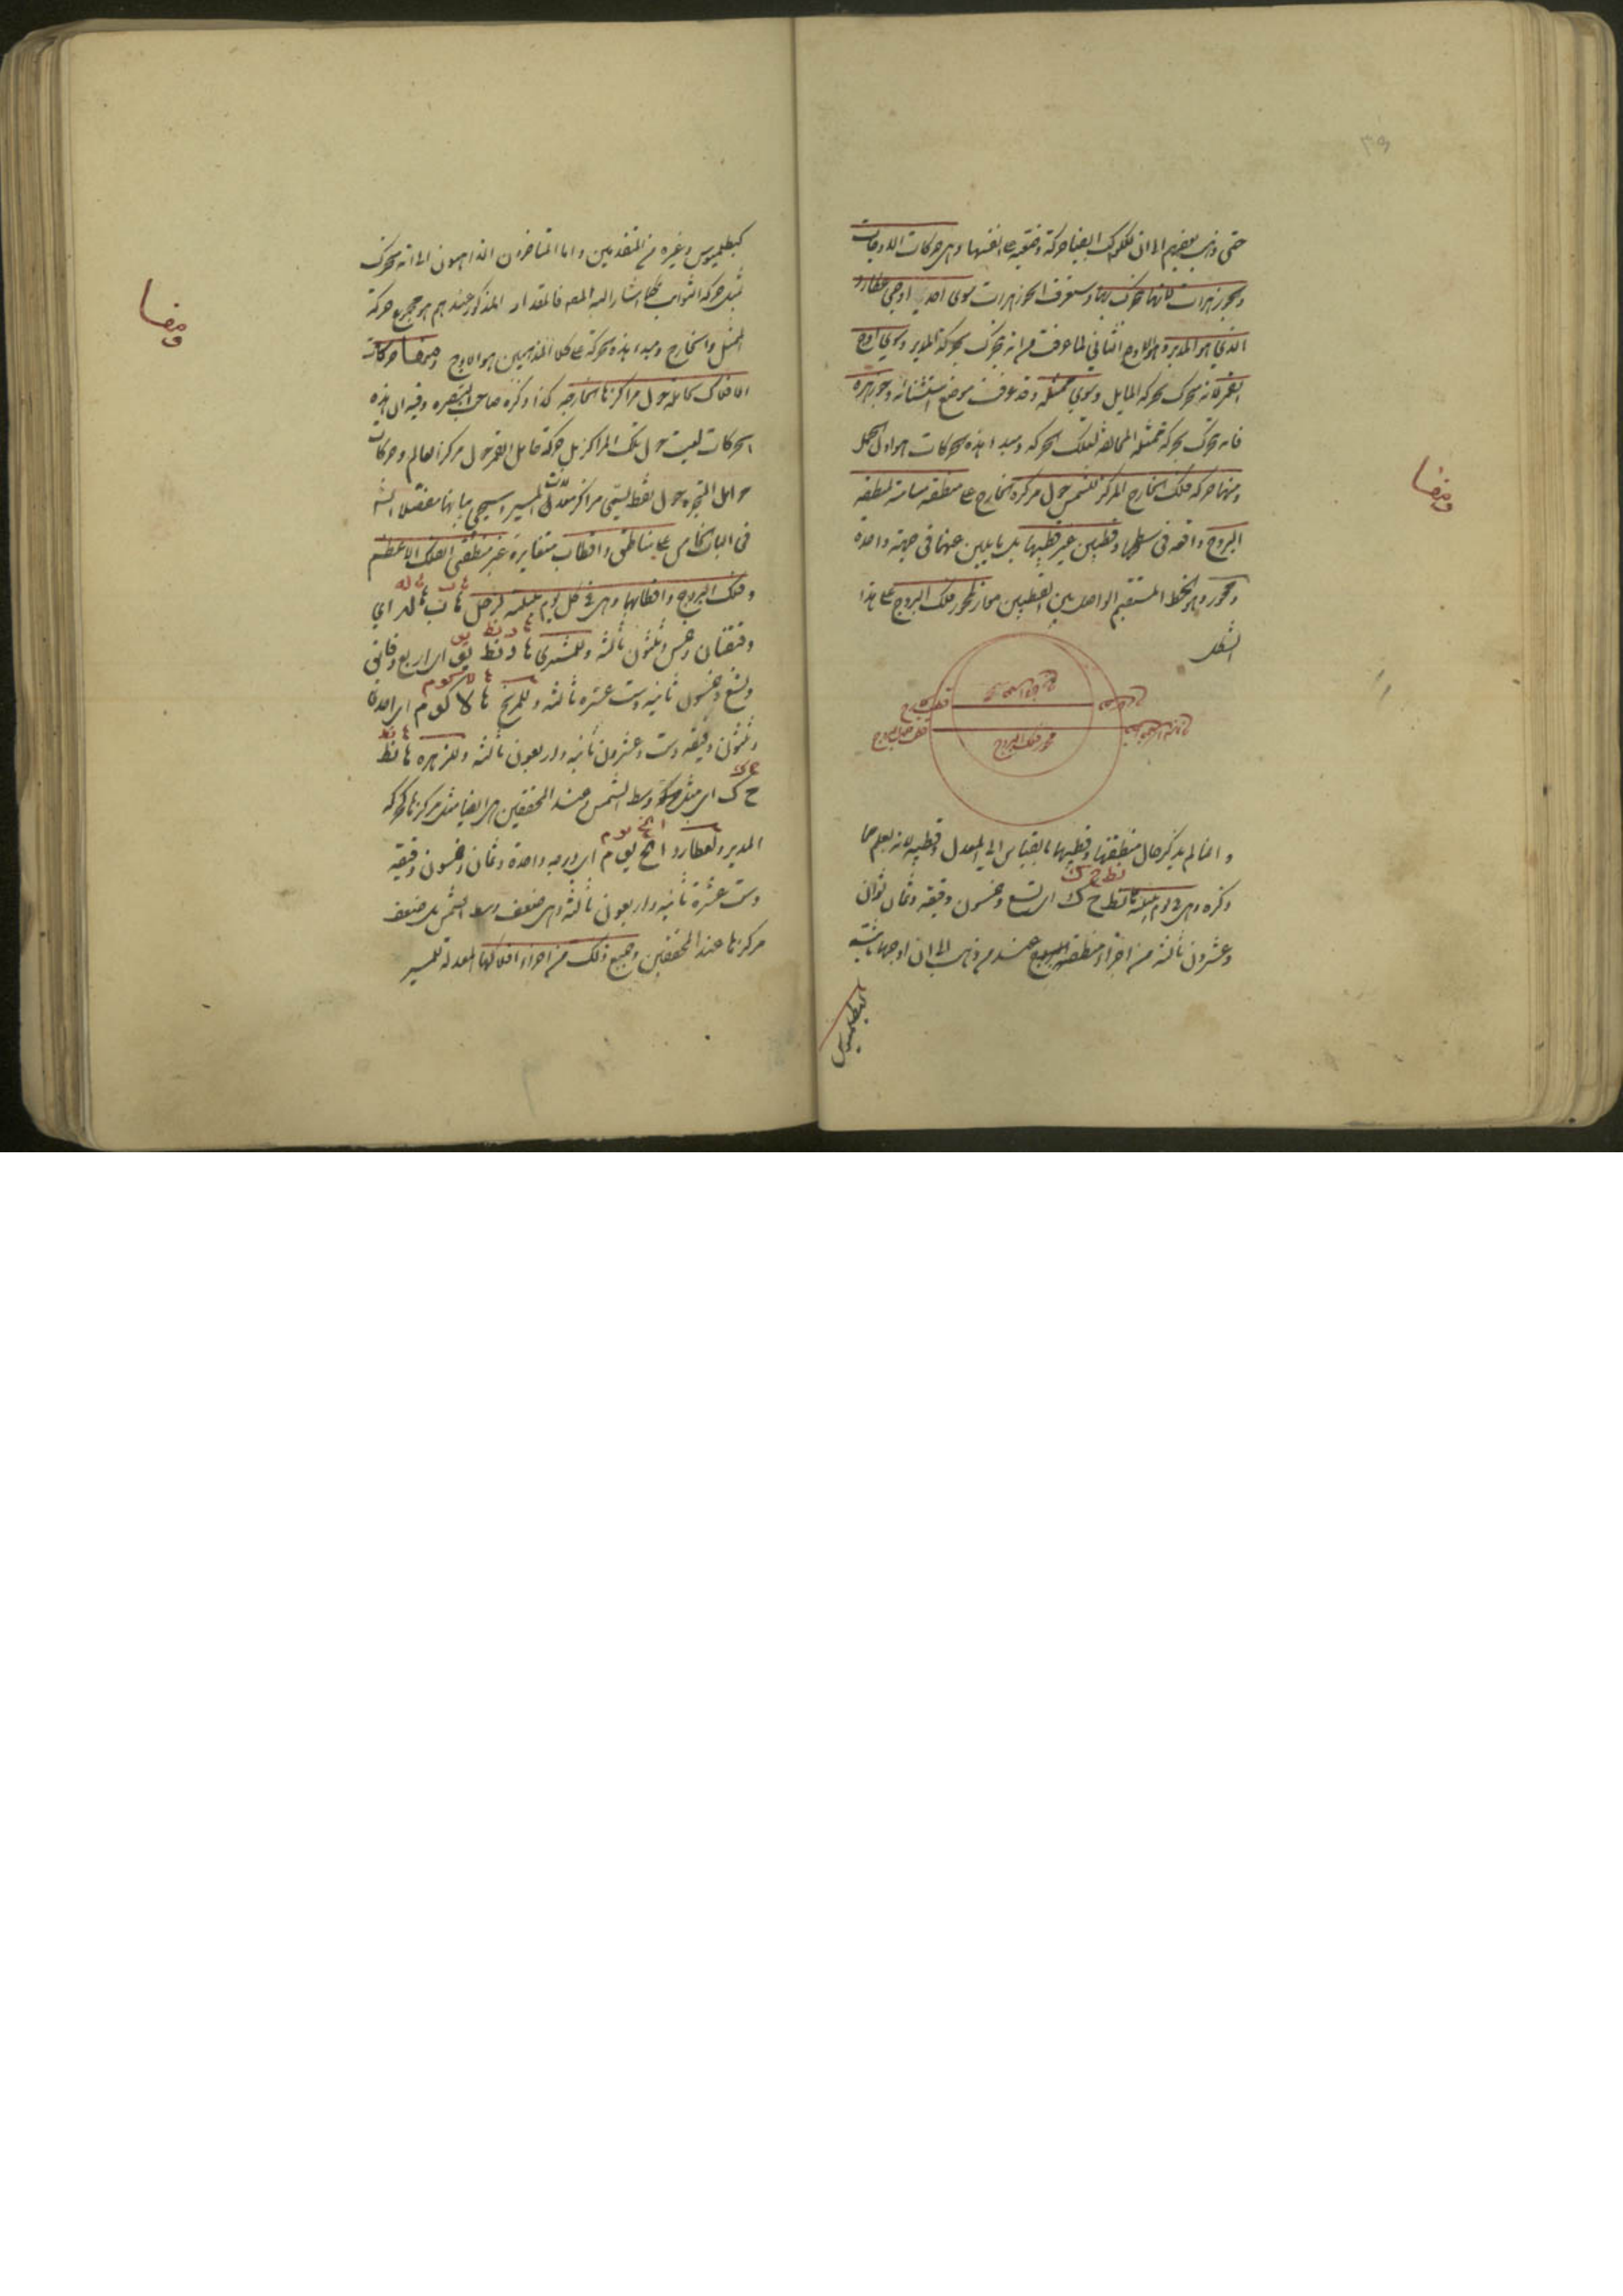 ٣٩
حتى ذهب بعضهم الى ان للكواكب ايضا حركة وضعية على انفسها وهى حركات الاوجات
والجوزهرات لانها تتحرك بها وستعرف الجوزهرات سوى احد اوجى عطارد
الذى هو المدير وهو الاوج الثانى لما عرفت من انه يتحرك بحركة المدير وسوى اوج
القمر لانه يتحرك بحركة المايل وسوى ممثله وقد عرفت موضع استثنائه وجوزهره
فانه يتحرك بحركة ممثله المخالفة لتلك الحركة ومبدء هذه الحركات هو اول الحمل
ومنها
ومنها حركة فلك الخارج المركز للشمس حول مركزه الخارج على منطقة مسامتة لمنطقة
البروج واقعة فى سطحها وقطبين غير قطبيها بل مايلين عنهما فى جهة واحدة
ومحور وهو الخط المستقيم الواصل بين القطبين مواز لمحور فلك البروج على هذا
الشكل
محور فلك البروج
وانما لم يذكر حال منطقتها وقطبيها بالقياس الى المعدل وقطبيه لانه يعلم مما
نط ح ك
ذكره وهى فى يوم بليلته نط ح ك اى تسع وخمسون دقيقة وثمان ثوانى
وعشرون ثالثة من اجزاء منطقة البروج عند من ذهب الى ان اوجها ثابتة
كبطلميوس
كبطلميوس وغيره من المتقدمين واما المتاخرون الذاهبون الى انه يتحرك
مثل حركة الثوابت كما اشار اليه المص فالمقدار المذكور عندهم هو مجموع حركة
الممثل والخارج ومبدء هذه الحركة على كلا المذهبين هو الاوج ومنها حركات
ومنها
الافلاك الحاملة حول مراكزها الخارجة كذا ذكره صاحب التبصرة وفيه ان هذه
الحركات ليست حول تلك المراكز بل حركة حامل القمر حول مركز العالم وحركات
حوامل المتحيرة حول نقط يسمى مراكز معدلات المسير سيجى بيانها مفصلا ان شاء الله
فى الباب الخامس على مناطق واقطاب متغايرة غير منطقتى الفلك الاعظم
وفلك البروج واقطابهما وهى فى كل يوم بليلته لزحل ب له اى
دقيقتان وخمس وثلثون ثالثة وللمشترى د نط يو اى اربع دقائق
وتسع وخمسون ثانية وست عشرة ثالثة وللمريخ لا كو م اى احدى
وثلثون دقيقة وست وعشرون ثانية واربعون ثالثة وللزهرة نط
ح ك اى مثل حركة وسط الشمس وعند المحققين هى ايضا مثل مركزها كحركة
المدير ولعطارد ا نح يو م اى درجة واحدة وثمان وخمسون دقيقة
وست عشرة ثانية واربعون ثالثة وهى ضعف وسط الشمس بل ضعف
مركزها عند المحققين وجميع ذلك من اجزاء افلاكها المعدلة للمسير